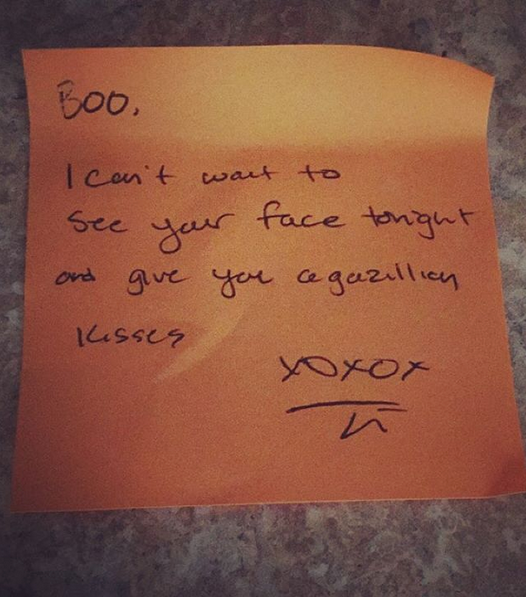 Boo,
I can't wait to
see your face tonight
and give you a gazillion
kisses
xoxox